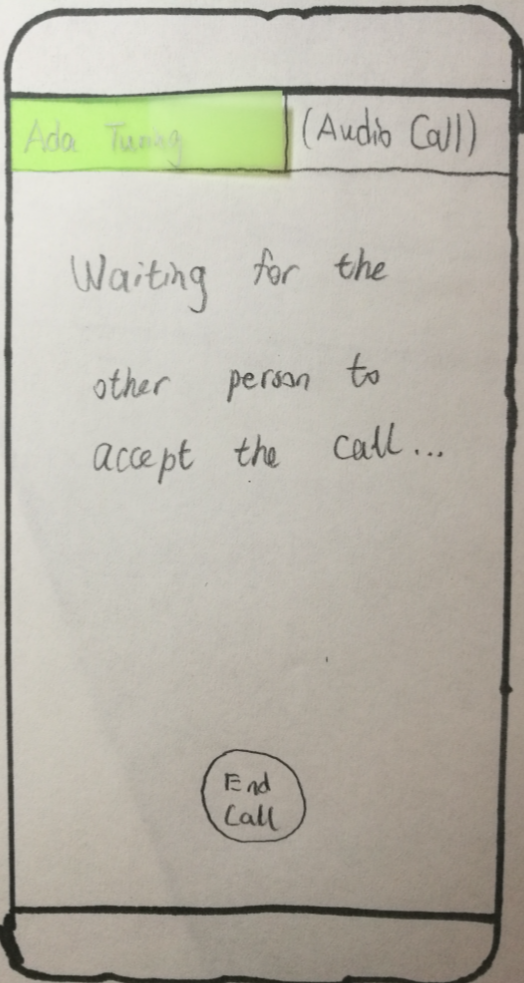 Ada Turing (Audio Call)
Waiting for the
other person to
accept the call...
End
Call